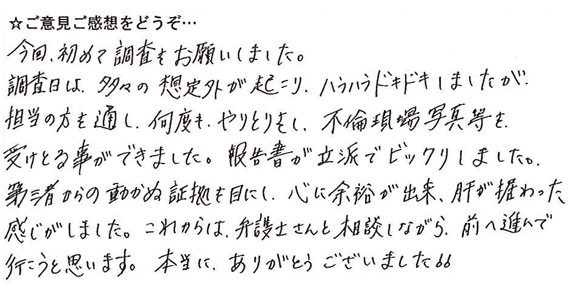 ☆ご意見ご感想をどうぞ…
今回、初めて調査をお願いしました。
調査日は、多々の想定外が起こり、ハラハラドキドキしましたが、
担当の方を通し、何度も、やりとりをし、不倫現場写真等を、
受けとる事ができました。報告書が立派でビックリしました。
第三者からの動かぬ証拠を目にし、心に余裕が出来、肝が据わった
感じがしました。これからは、弁護士さんと相談しながら、前へ進んで
行こうと思います。本当に、ありがとうございました